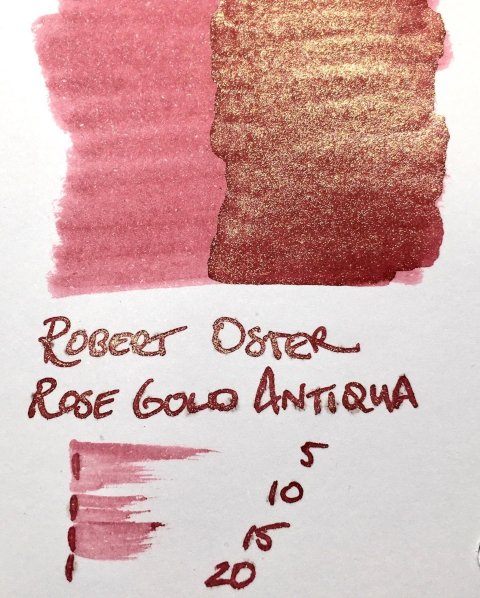 ROBERT OSTER
ROSE GOLD ANTIQUA
5
10
15
20